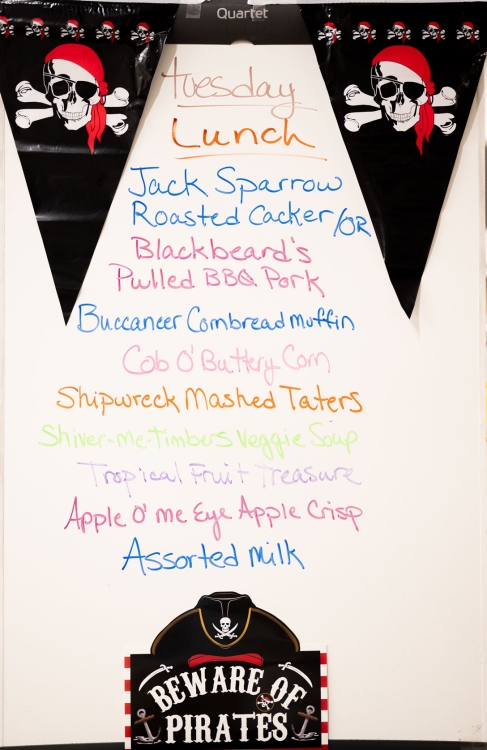 Quartet
Tuesday
Lunch
Jack Sparrow
Roasted Cacker/OR
Blackbeard's
Pulled BBQ Pork
Buccaneer Cornbread muffin
Cob O' Buttery Corn
Shipwreck Mashed Taters
Shiver-me-Timbers Veggie Soup
Tropical Fruit Treasure
Apple O' me Eye Apple Crisp
Assorted milk
BEWARE OF
PIRATES